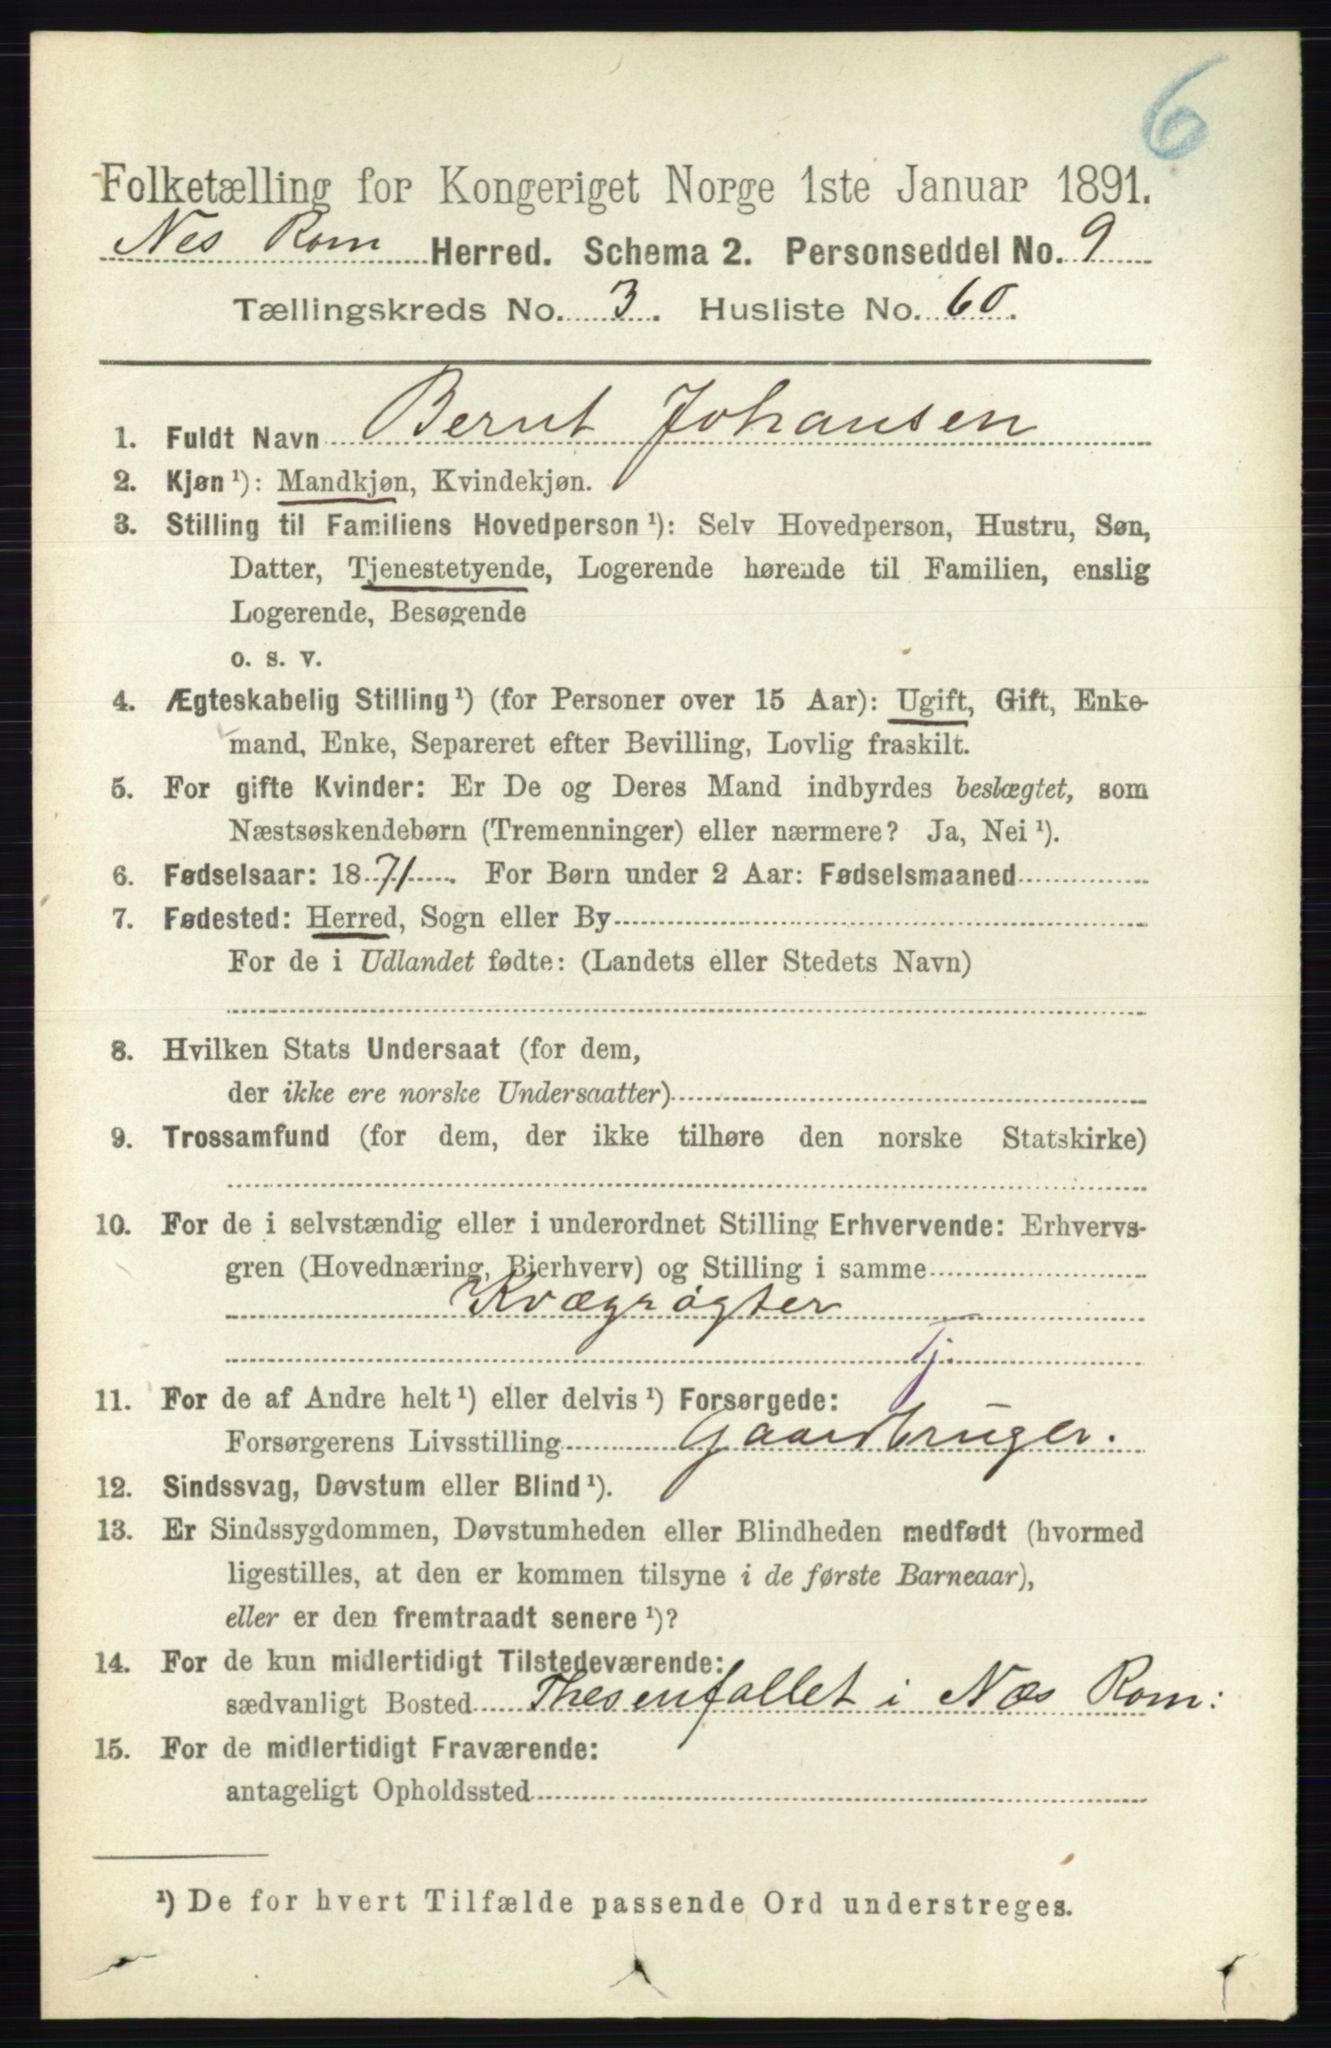 6
Folketælling for Kongeriget Norge 1ste Januar 1891.
Nes Rom Herred. Schema 2. Personseddel No. 9
Tællingskreds No. 3. Husliste No. 60.
1. Fuldt Navn Bernt Johansen
2. Kjøn ¹): Mandkjøn, Kvindekjøn.
3. Stilling til Familiens Hovedperson ¹): Selv Hovedperson, Hustru, Søn,
Datter, Tjenestetyende, Logerende hørende til Familien, enslig
Logerende, Besøgende
o. s. v.
4. Ægteskabelig Stilling ¹) (for Personer over 15 Aar): Ugift, Gift, Enke-
mand, Enke, Separeret efter Bevilling, Lovlig fraskilt.
5. For gifte Kvinder: Er De og Deres Mand indbyrdes beslægtet, som
Næstsøskendebørn (Tremenninger) eller nærmere? Ja, Nei ¹).
6. Fødselsaar: 1871. For Børn under 2 Aar: Fødselsmaaned
7. Fødested: Herred, Sogn eller By
For de i Udlandet fødte: (Landets eller Stedets Navn)
8. Hvilken Stats Undersaat (for dem,
der ikke ere norske Undersaatter)
9. Trossamfund (for dem, der ikke tilhøre den norske Statskirke)
10. For de i selvstændig eller i underordnet Stilling Erhvervende: Erhvervs-
gren (Hovednæring, Bierhverv) og Stilling i samme
Kvægrøgter
Tj.
11. For de af Andre helt ¹) eller delvis ¹) Forsørgede:
Forsørgerens Livsstilling Gaardbruger.
12. Sindssvag, Døvstum eller Blind ¹).
13. Er Sindssygdommen, Døvstumheden eller Blindheden medfødt (hvormed
ligestilles, at den er kommen tilsyne i de første Barneaar),
eller er den fremtraadt senere ¹)?
14. For de kun midlertidigt Tilstedeværende:
sædvanligt Bosted Thesenfallet i Næs Rom:
15. For de midlertidigt Fraværende:
antageligt Opholdssted
¹) De for hvert Tilfælde passende Ord understreges.